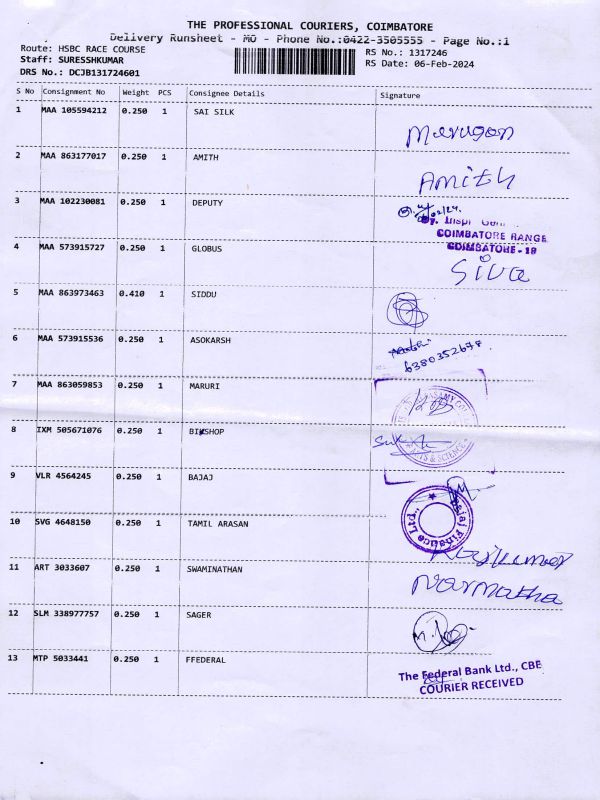 THE PROFESSIONAL COURIERS, COIMBATORE
Delivery Runsheet - MO - Phone No.:0422-3505555 - Page No.:1
Route: HSBC RACE COURSE
RS No.: 1317246
Staff: SURESSHKUMAR
RS Date: 06-Feb-2024
DRS No.: DCJB131724601
S No Consignment No Weight PCS Consignee Details Signature
1 MAA 105594212 0.250 1 SAI SILK
Murugan
2 MAA 863177017 0.250 1 AMITH
Amith
3 MAA 102230081 0.250 1 DEPUTY
COIMBATORE RANGE
COIMBATORE - 18
4 MAA 573915727 0.250 1 GLOBUS
Siva
5 MAA 863973463 0.410 1 SIDDU
6 MAA 573915536 0.250 1 ASOKARSH
6380352678
7 MAA 863059853 0.250 1 MARURI
8 IXM 505671076 0.250 1 BISHOP
ARTS & SCIENCE
9 VLR 4564245 0.250 1 BAJAJ
Bajaj Finance Ltd.,
10 SVG 4648150 0.250 1 TAMIL ARASAN
Rajkumar
11 ART 3033607 0.250 1 SWAMINATHAN
Narmatha
12 SLM 338977757 0.250 1 SAGER
13 MTP 5033441 0.250 1 FFEDERAL
The Federal Bank Ltd., CBE
COURIER RECEIVED